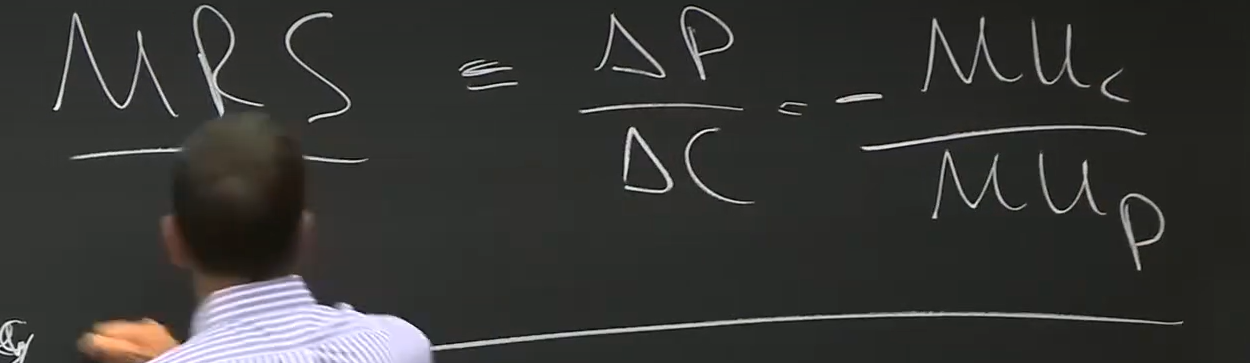 MRS = ΔP/ΔC = - MU_C/MU_P